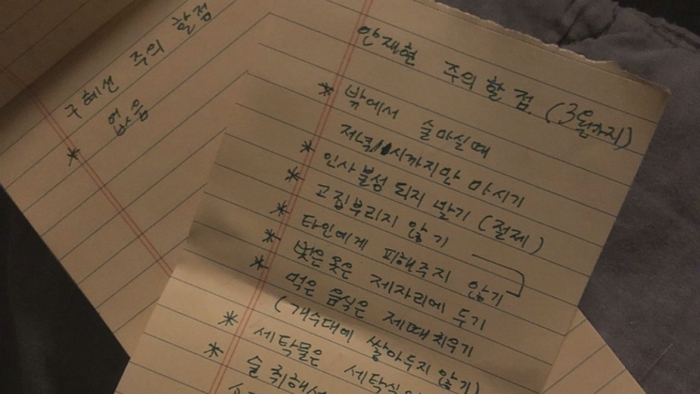 구혜선 주의 할점
* 없음
안재현 주의할 점 (3월까지)
* 밖에서 술마실때
저녁11시까지만 마시기
* 인사불성 되지 말기 (절제)
* 고집부리지 않기
* 타인에게 피해주지 않기
* 벗은 옷은 제자리에 두기
* 먹은 음식은 제때 치우기
(개수대에 쌓아두지 않기)
* 세탁물은
* 술 취해서